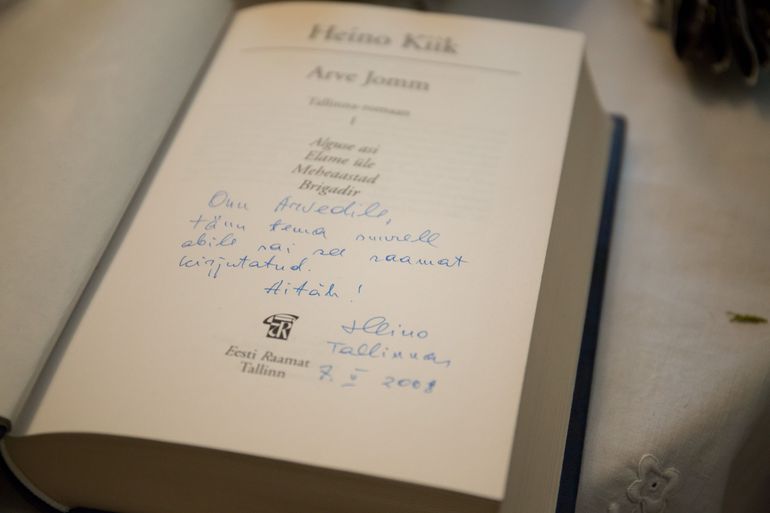 Heino Kiik
Arve Jomm
Tallinna-romaan
I
Alguse asi
Elame üle
Meheaastad
Brigadir
Onu Arvedile,
tänu tema suurele
abile sai see raamat
kirjutatud.
Aitäh!
Heino
Tallinnas
7. V 2008
Eesti Raamat
Tallinn